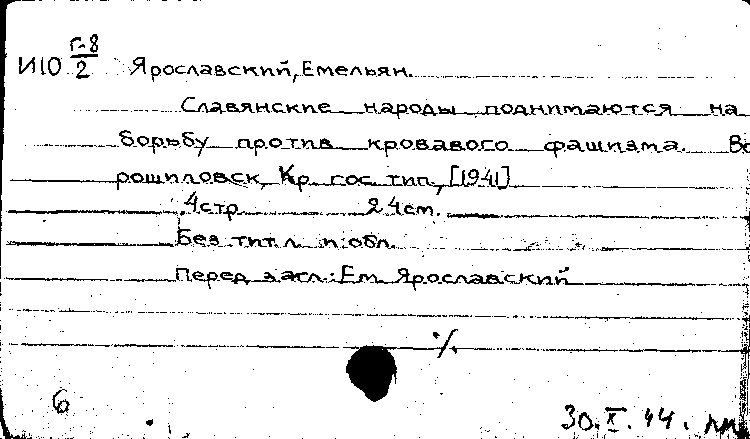 И10 Г-8/2 Ярославский, Емельян.
Славянские народы поднимаются на
борьбу против кровавого фашизма. Во
рошиловск, Кр. гос. тип., [1941]
4стр. 24см.
Без тит. л. и обл.
Перед загл.: Ем. Ярославский
./.
6
30.X.44.